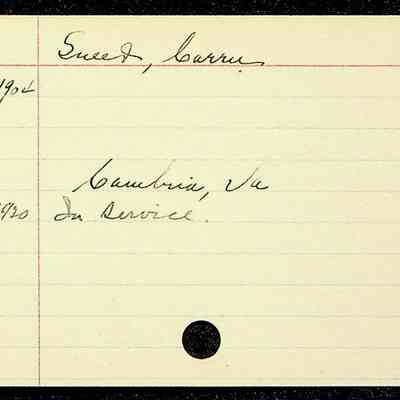 Sneed, Carrie
1904
Cambria, Va
1920 In service.